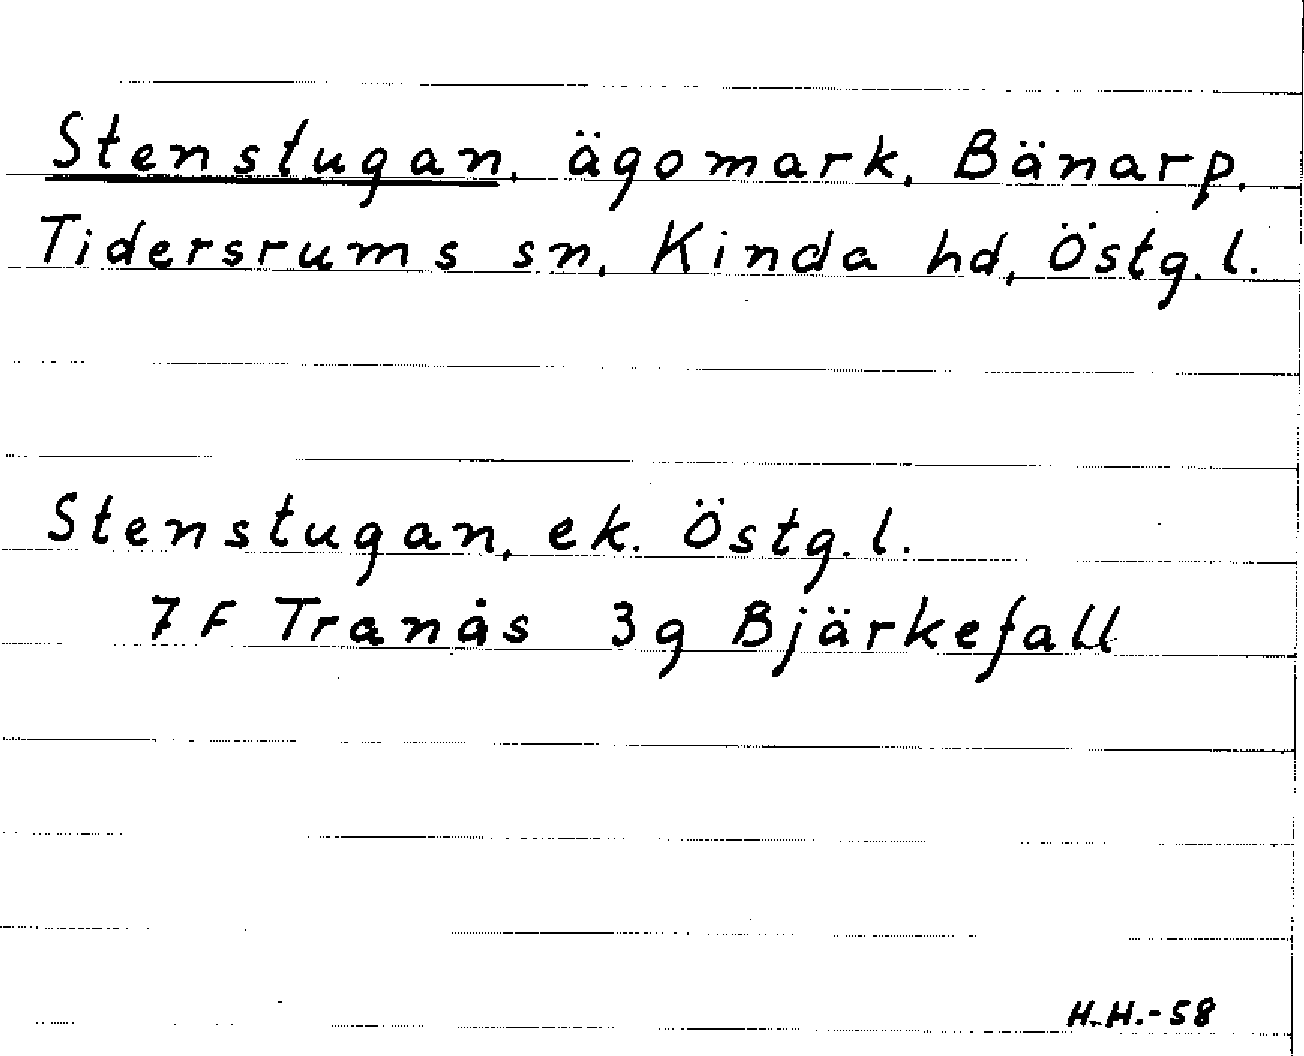 Stenstugan, ägomark, Bänarp,
Tidersrums sn, Kinda hd, Östg. l.
Stenstugan, ek. Östg. l.
7 F Tranås 3g Bjärkefall
H.H.-58